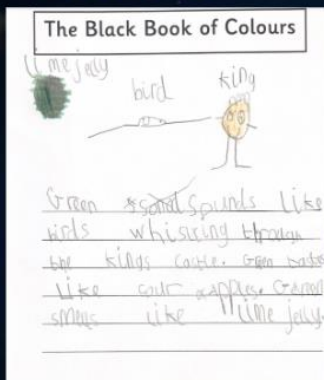 The Black Book of Colours
lime jelly
bird
king
Green sounds like
birds whistring through
the kings castle. Green tastes
like sour apples. Green
smells like lime jelly.